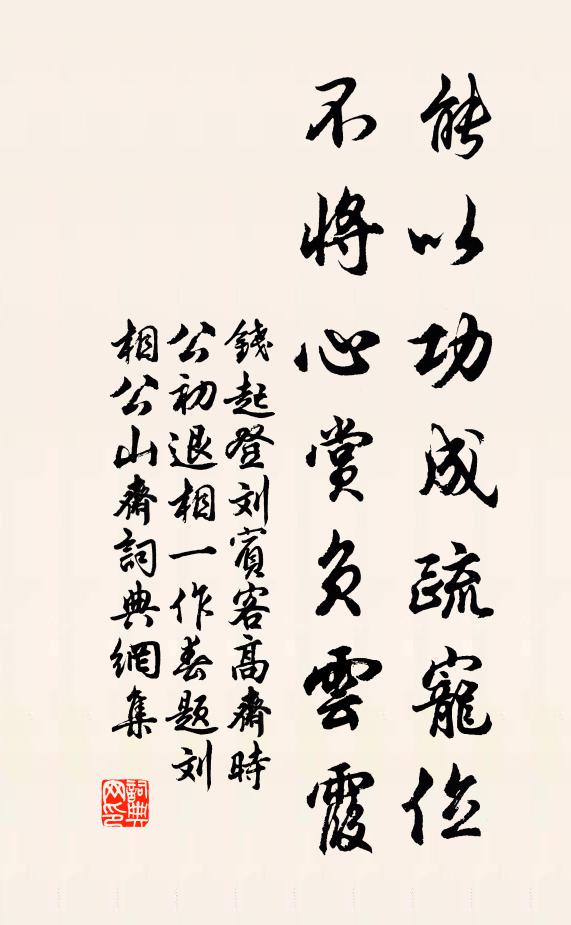 能以功成疏寵位
不將心賞負雲霞
錢起登刘賓客高齋時
公初退相一作春題刘
相公山齋詞典網集
詞典网印